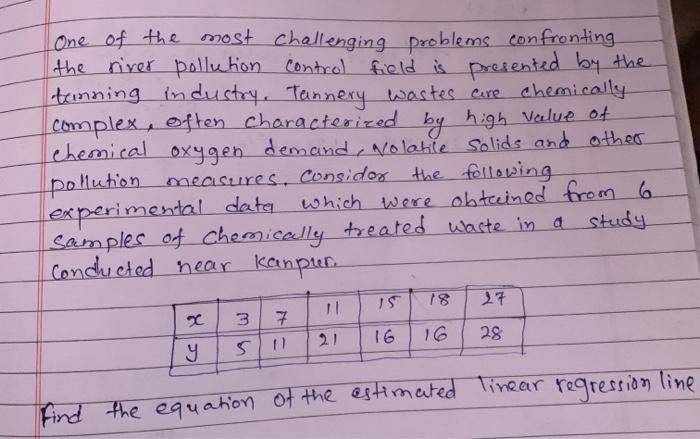 One of the most challenging problems confronting
the river pollution control field is presented by the
tanning industry. Tannery wastes are chemically
complex, often characterized by high value of
chemical oxygen demand, volatile solids and other
pollution measures. Consider the following
experimental data which were obtained from 6
samples of chemically treated waste in a study
conducted near Kanpur.
x 3 7 11 15 18 27
y 5 11 21 16 16 28
Find the equation of the estimated linear regression line